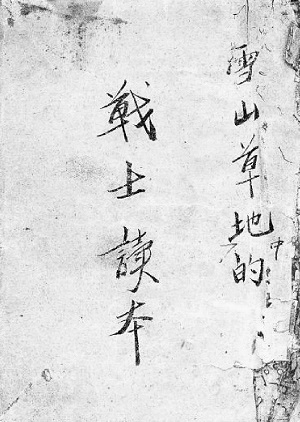 雪山草地中的
戰士讀本